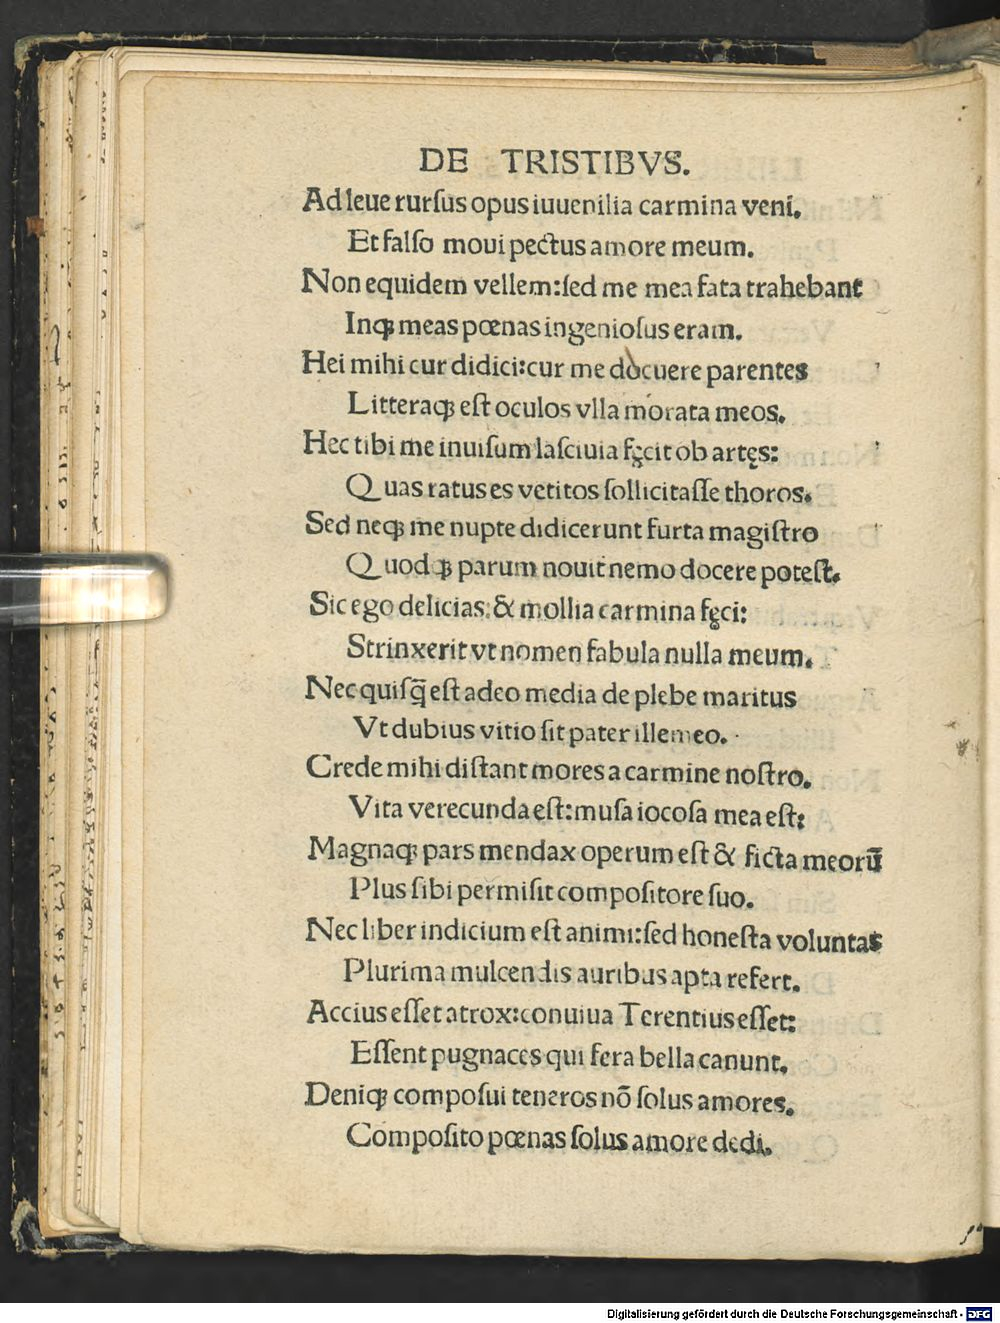 DE TRISTIBVS.
Ad leue rurſus opus iuuenilia carmina veni.
Et falſo moui pectus amore meum.
Non equidem vellem:ſed me mea fata trahebant
Inqꝫ meas pœnas ingenioſus eram.
Hei mihi cur didici:cur me docuere parentes
Litteraqꝫ eſt oculos vlla morata meos.
Hec tibi me inuiſum laſciuia fęcit ob artęs:
Quas ratus es vetitos ſollicitaſſe thoros.
Sed neqꝫ me nupte didicerunt furta magiſtro
Quodqꝫ parum nouit nemo docere poteſt.
Sic ego delicias:& mollia carmina fęci:
Strinxerit vt nomen fabula nulla meum.
Nec quiſq̄ eſt adeo media de plebe maritus
Vt dubius vitio ſit pater ille meo.
Crede mihi diſtant mores a carmine noſtro.
Vita verecunda eſt:muſa iocoſa mea eſt:
Magnaqꝫ pars mendax operum eſt & ficta meorū
Plus ſibi permiſit compoſitore ſuo.
Nec liber indicium eſt animi:ſed honeſta voluntas
Plurima mulcendis auribus apta refert.
Accius eſſet atrox:conuiua Terentius eſſet:
Eſſent pugnaces qui fera bella canunt.
Deniqꝫ compoſui teneros nō ſolus amores.
Compoſito pœnas ſolus amore dedi.
Digitalisierung gefördert durch die Deutsche Forschungsgemeinschaft - DFG